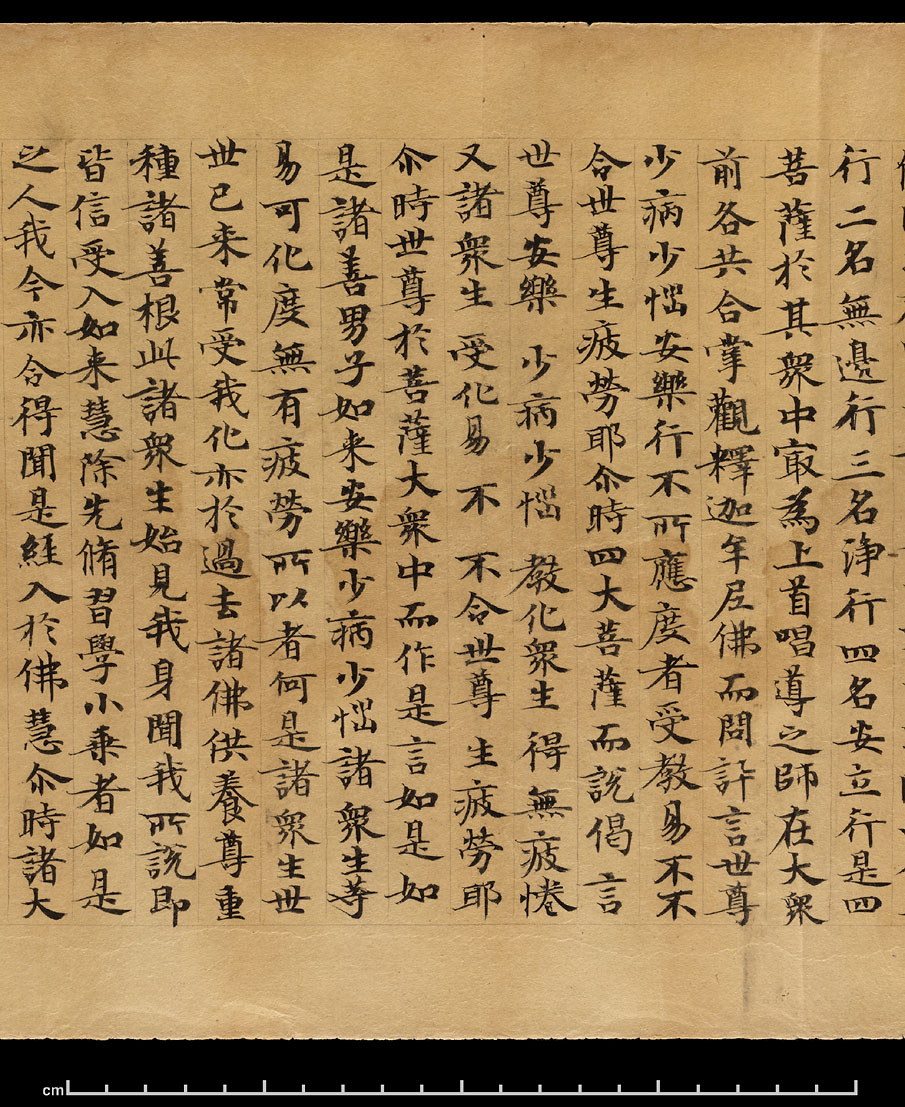 行二名無邊行三名淨行四名安立行是四
菩薩於其衆中㝡為上首唱導之師在大衆
前各共合掌觀釋迦牟尼佛而問訊言世尊
少病少惱安樂行不所應度者受教易不不
令世尊生疲勞耶尒時四大菩薩而說偈言
世尊安樂 少病少惱 教化衆生 得無疲惓
又諸衆生 受化易不 不令世尊 生疲勞耶
尒時世尊於菩薩大衆中而作是言如是如
是諸善男子如来安樂少病少惱諸衆生等
易可化度無有疲勞所以者何是諸衆生世
世已来常受我化亦於過去諸佛供養尊重
種諸善根此諸衆生始見我身聞我所說即
皆信受入如来慧除先脩習學小乗者如是
之人我今亦令得聞是經入於佛慧尒時諸大
cm